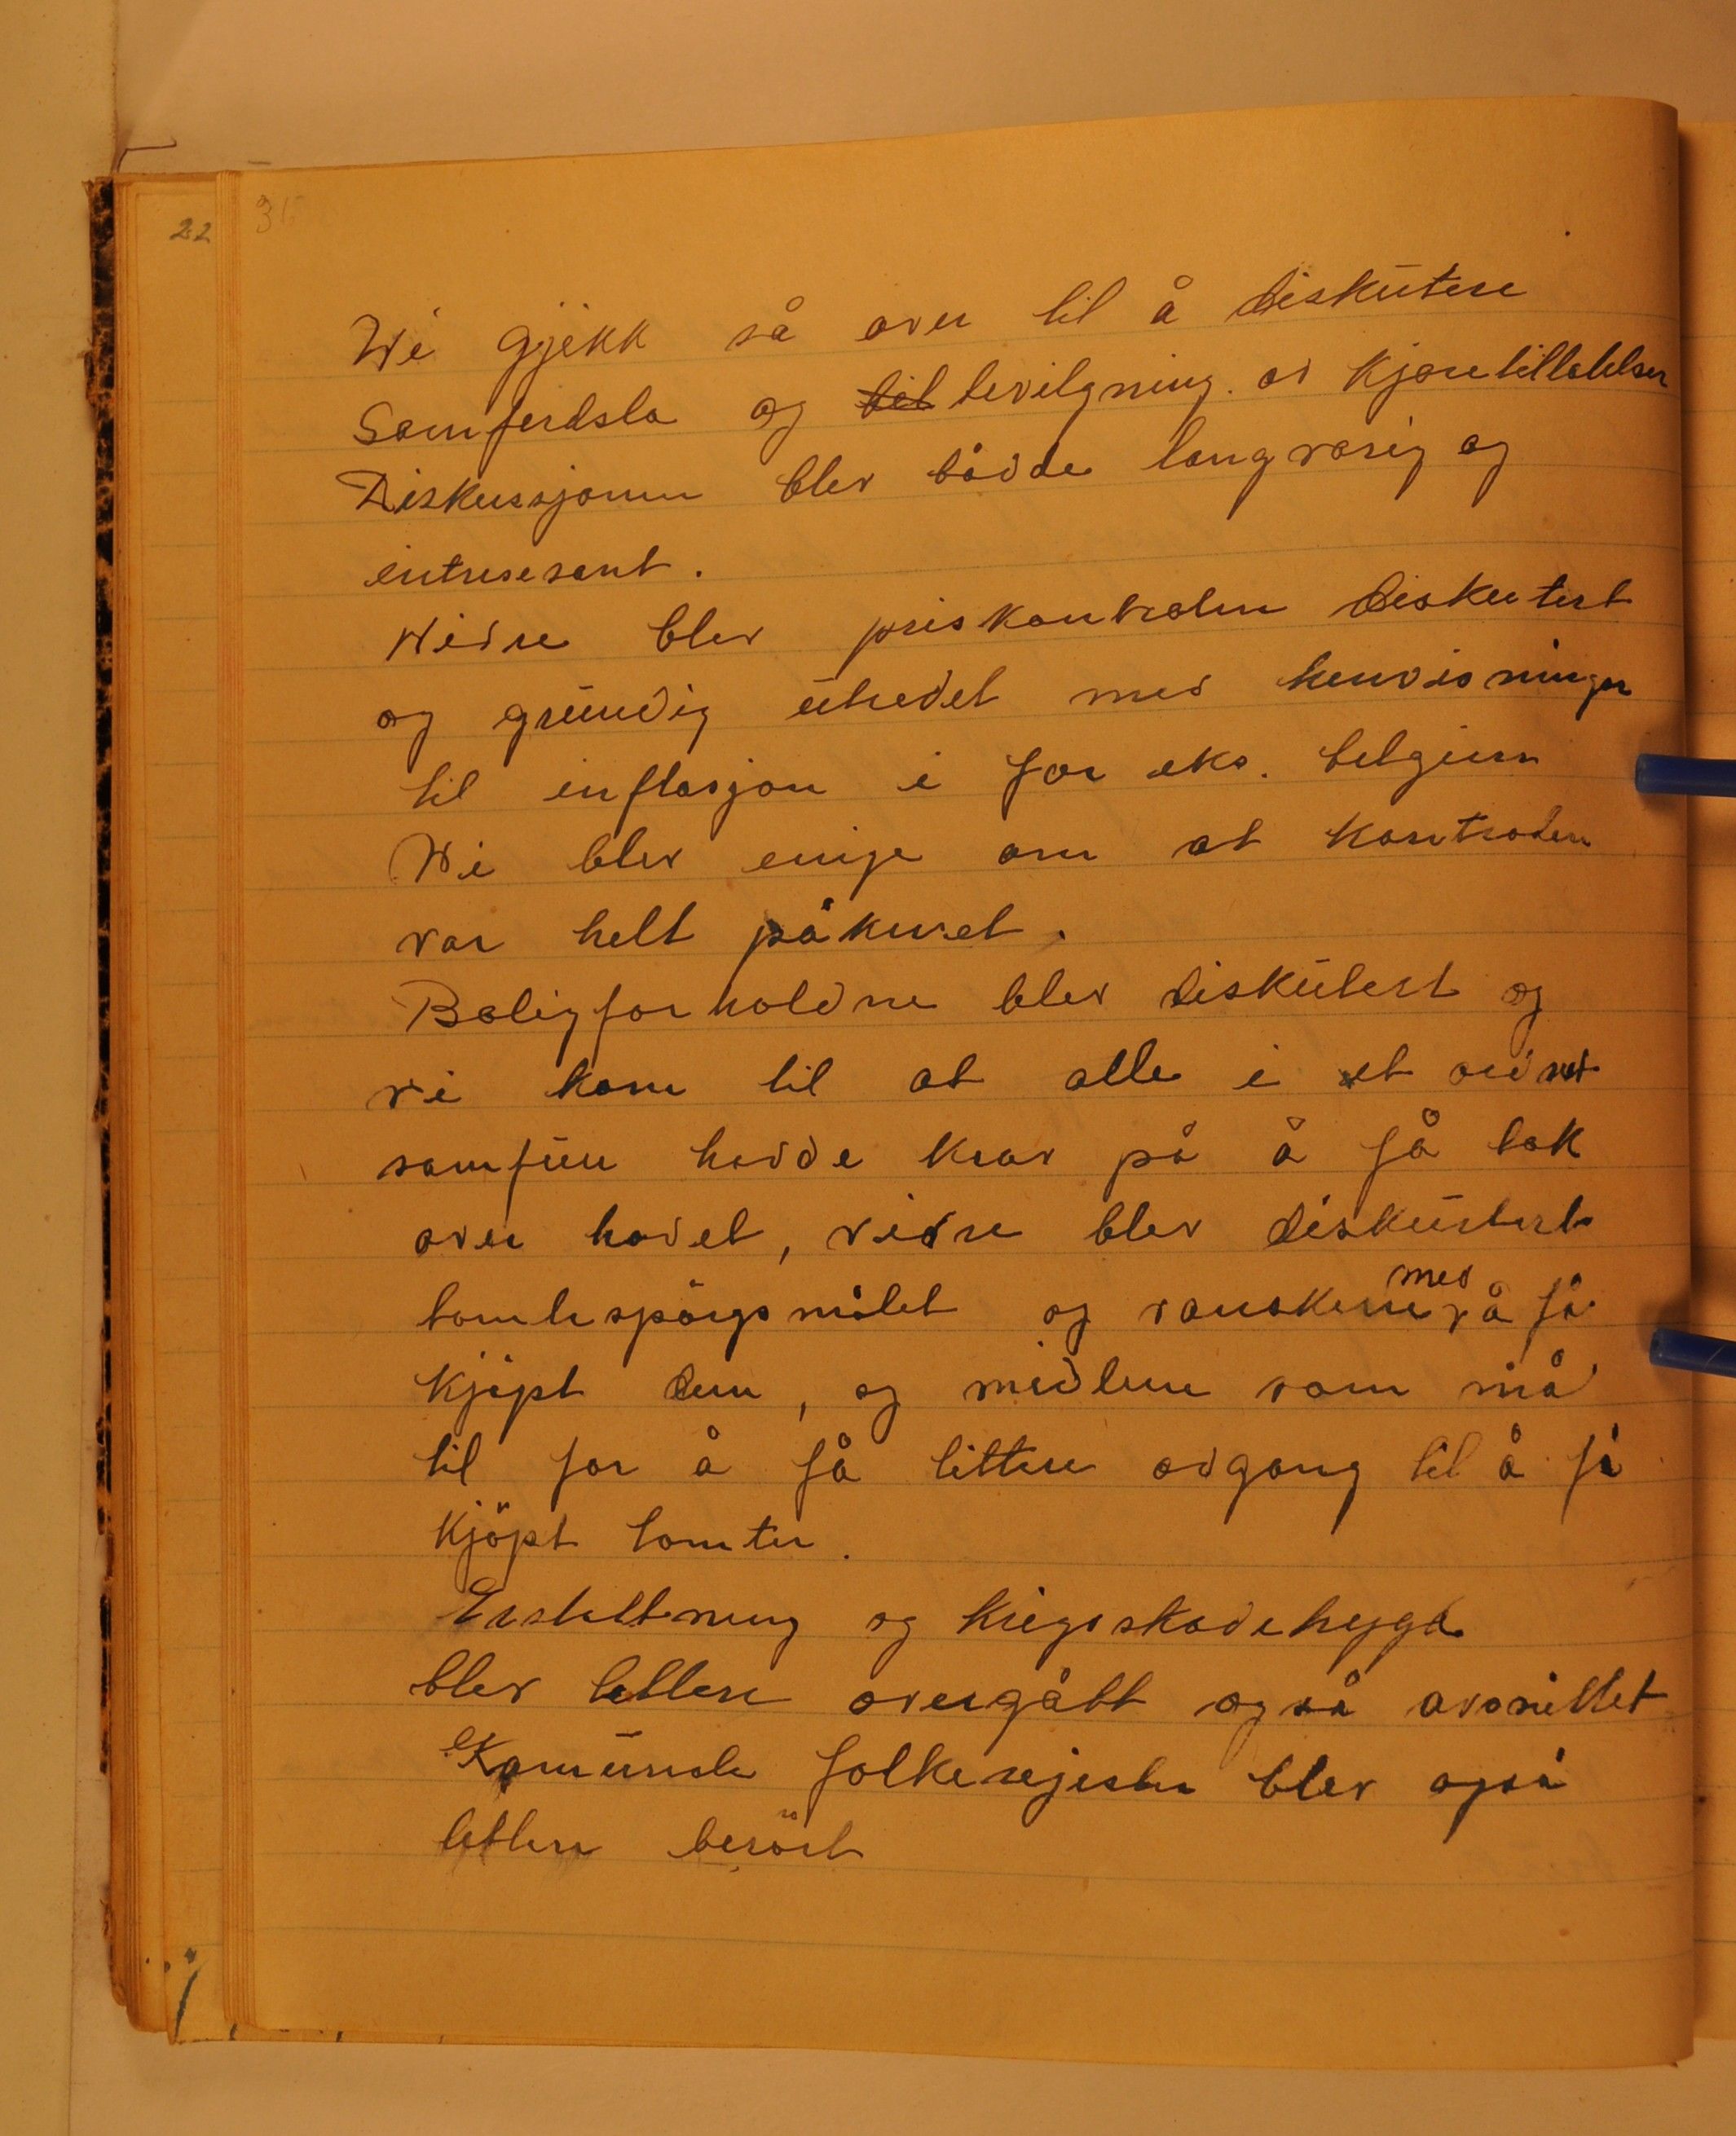 22
Wi gjekk så over til å diskutere
Samferdsla og til bevilgning. av kjøretillatelser
Diskussjonen blev både langvarig og
intresesant.
Widre blev priskontrolen diskutert
og grundig utredet med henvisninger
til inflasjon i for eks. belgien
Wi blev enige om at kontrolen
var helt påkrevet.
Boligforholdne blev diskutert og
vi kom til at alle i et ordnet
samfun hadde krav på å få tak
over hodet, vidre blev diskutert
tomtespörgsmålet og vansken med å få
kjöpt dem, og midlene som må
til for å få lettere adgang til å få
kjöpt tomter.
Erstattning og krigsskadetrygd
blev lettere overgått også avsnittet
Komunale folkeregister blev også
lettere berört